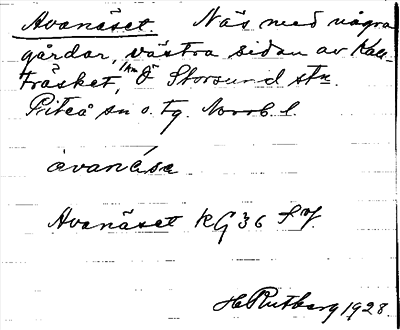 Avanäset. Näs med några
gårdar, västra sidan av Kal-
träsket, 1 km Ö Storsund stn.
Piteå sn o. tg. Norrb. l.
àvanésa
Avanäset KG 36 SV.
H Rutberg 1928